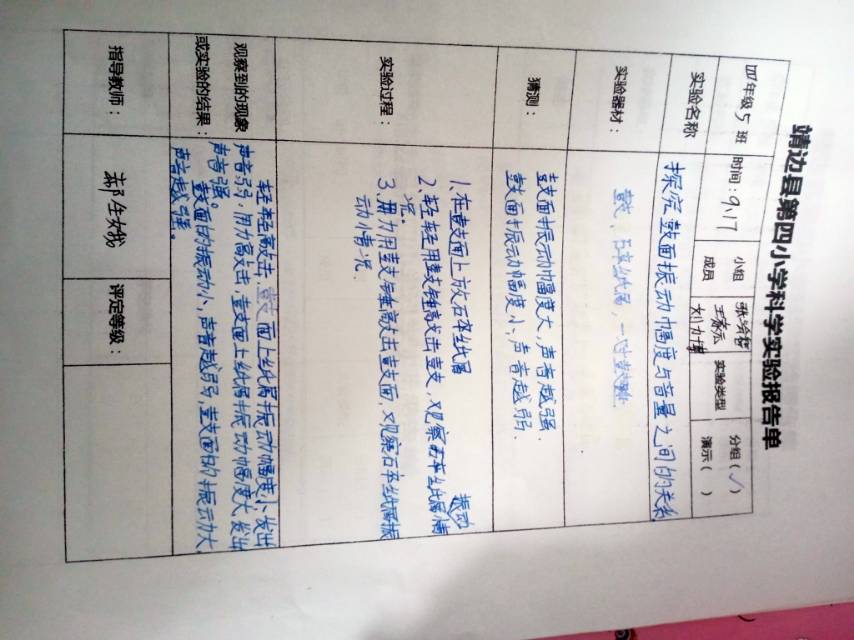 靖边县第四小学科学实验报告单
四年级5班 时间：9.17 小组成员 实验类型 分组（√） 演示（ ）
实验名称 探究鼓面振动幅度与音量之间的关系
实验器材： 鼓、碎纸屑、一对鼓锤
猜测： 鼓面振动幅度大，声音越强.
鼓面振动幅度小，声音越弱.
实验过程： 1、在鼓面上放碎纸屑
2、轻轻用鼓锤敲击鼓，观察碎纸屑振动情
况。
3、用力用鼓锤敲击鼓面，观察碎纸屑振
动情况.
观察到的现象
或实验的结果： 轻轻敲击，鼓面上纸屑振动幅度小，发出
声音弱，用力敲击，鼓面上纸屑振动幅度大，发出
声音强。鼓面的振动小，声音越弱，鼓面的振动大，
声音越强。
指导教师： 评定等级：